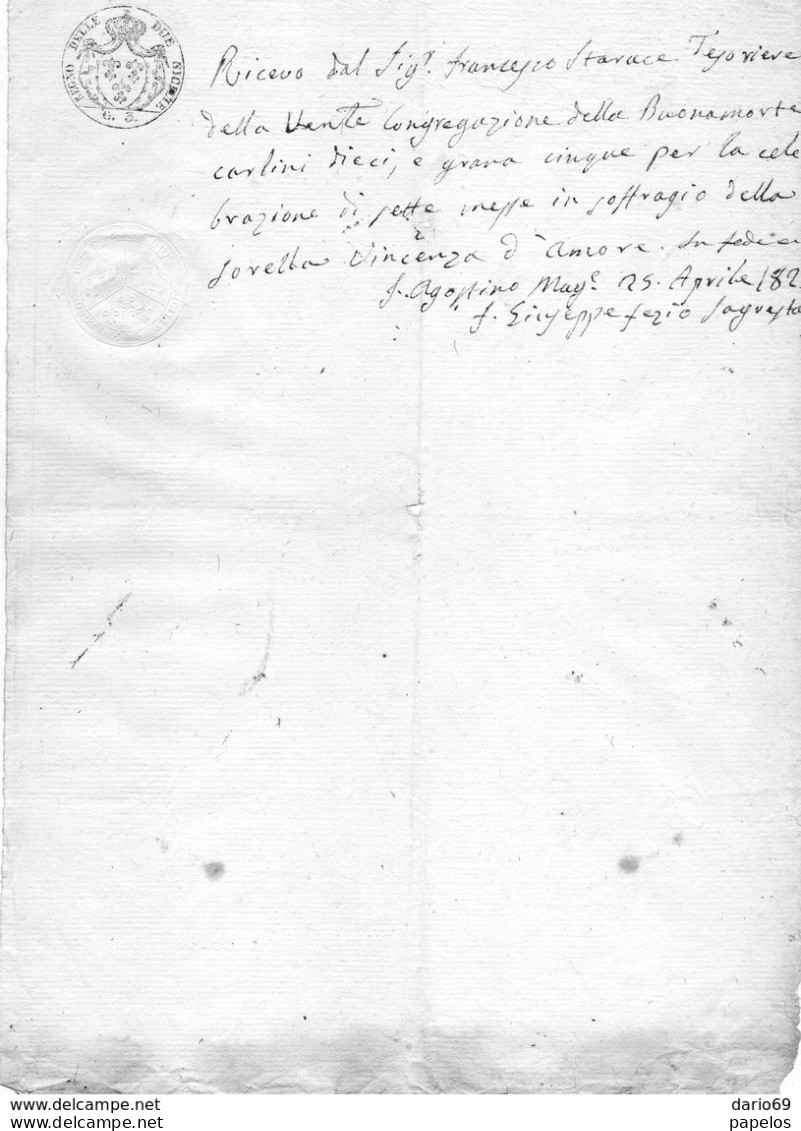 REGNO DELLE DUE SICILIE
G. 3.
Ricevo dal Sigr. Francesco Starace Tesoriere
della Venle Congregazione della Buonamorte
carlini dieci, e grana cinque per la cele
brazione di sette messe in soffragio della
sorella Vincenza d'Amore. In fede
S. Agostino Magre 25. Aprile 182
f. Giuseppe Sagresta
www.delcampe.net
www.delcampe.net
dario69
papelos